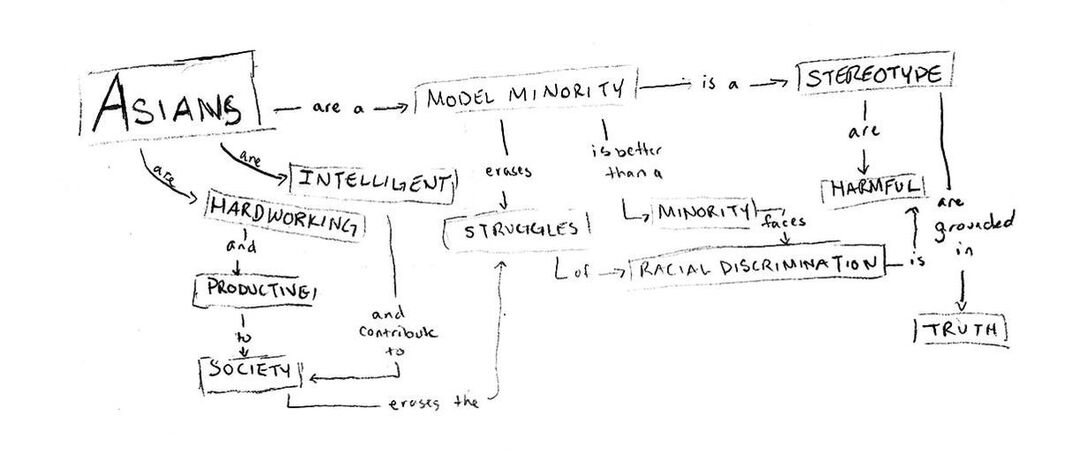 ASIANS are a MODEL MINORITY is a STEREOTYPE
are
are
INTELLIGENT
HARDWORKING
and
PRODUCTIVE
to
SOCIETY
and
contribute
to
erases the
erases
STRUGGLES
of
is better
than a
MINORITY
faces
RACIAL DISCRIMINATION
is
are
HARMFUL
are
grounded
in
TRUTH